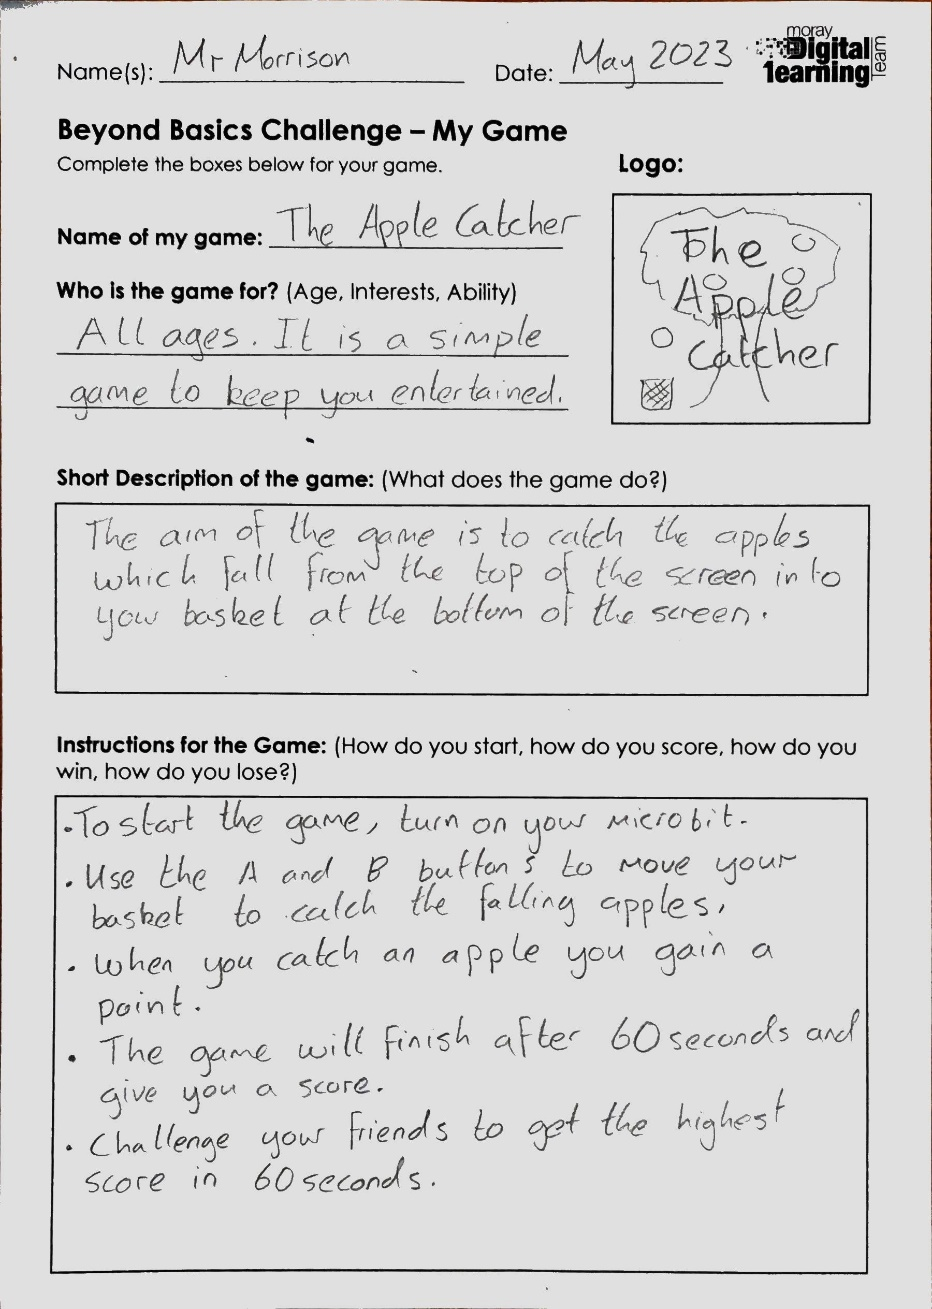 Name(s): Mr Morrison Date: May 2023
moray
Digital
learning
team
Beyond Basics Challenge – My Game
Complete the boxes below for your game.
Logo:
Name of my game: The Apple Catcher
The
Apple
Catcher
Who is the game for? (Age, Interests, Ability)
All ages. It is a simple
game to keep you entertained.
Short Description of the game: (What does the game do?)
The aim of the game is to catch the apples
which fall from the top of the screen into
your basket at the bottom of the screen.
Instructions for the Game: (How do you start, how do you score, how do you
win, how do you lose?)
• To start the game, turn on your microbit.
• Use the A and B buttons to move your
basket to catch the falling apples.
• When you catch an apple you gain a
point.
• The game will finish after 60 seconds and
give you a score.
• Challenge your friends to get the highest
score in 60 seconds.